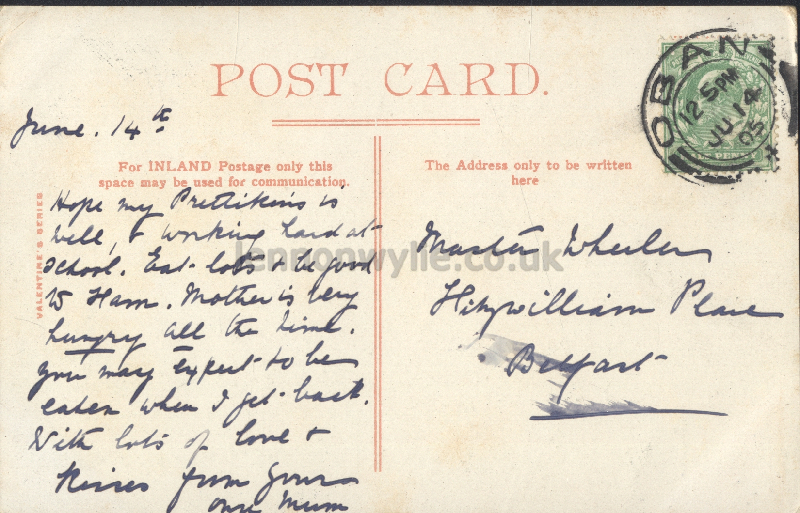 POST CARD.
OBAN
12 5 PM
JU 14
05
June. 14th
For INLAND Postage only this
space may be used for communication.
The Address only to be written
here
VALENTINE'S SERIES
Hope my Prettikins is
well, & working hard at
school. Eat lots & be good
to Ham. Mother is very
hungry all the time.
you may expect to be
eaten when I get back.
With lots of love &
Kisses from yours
own Mum
Master Wheeler
Fitzwilliam Place
Belfast
lennonwylie.co.uk